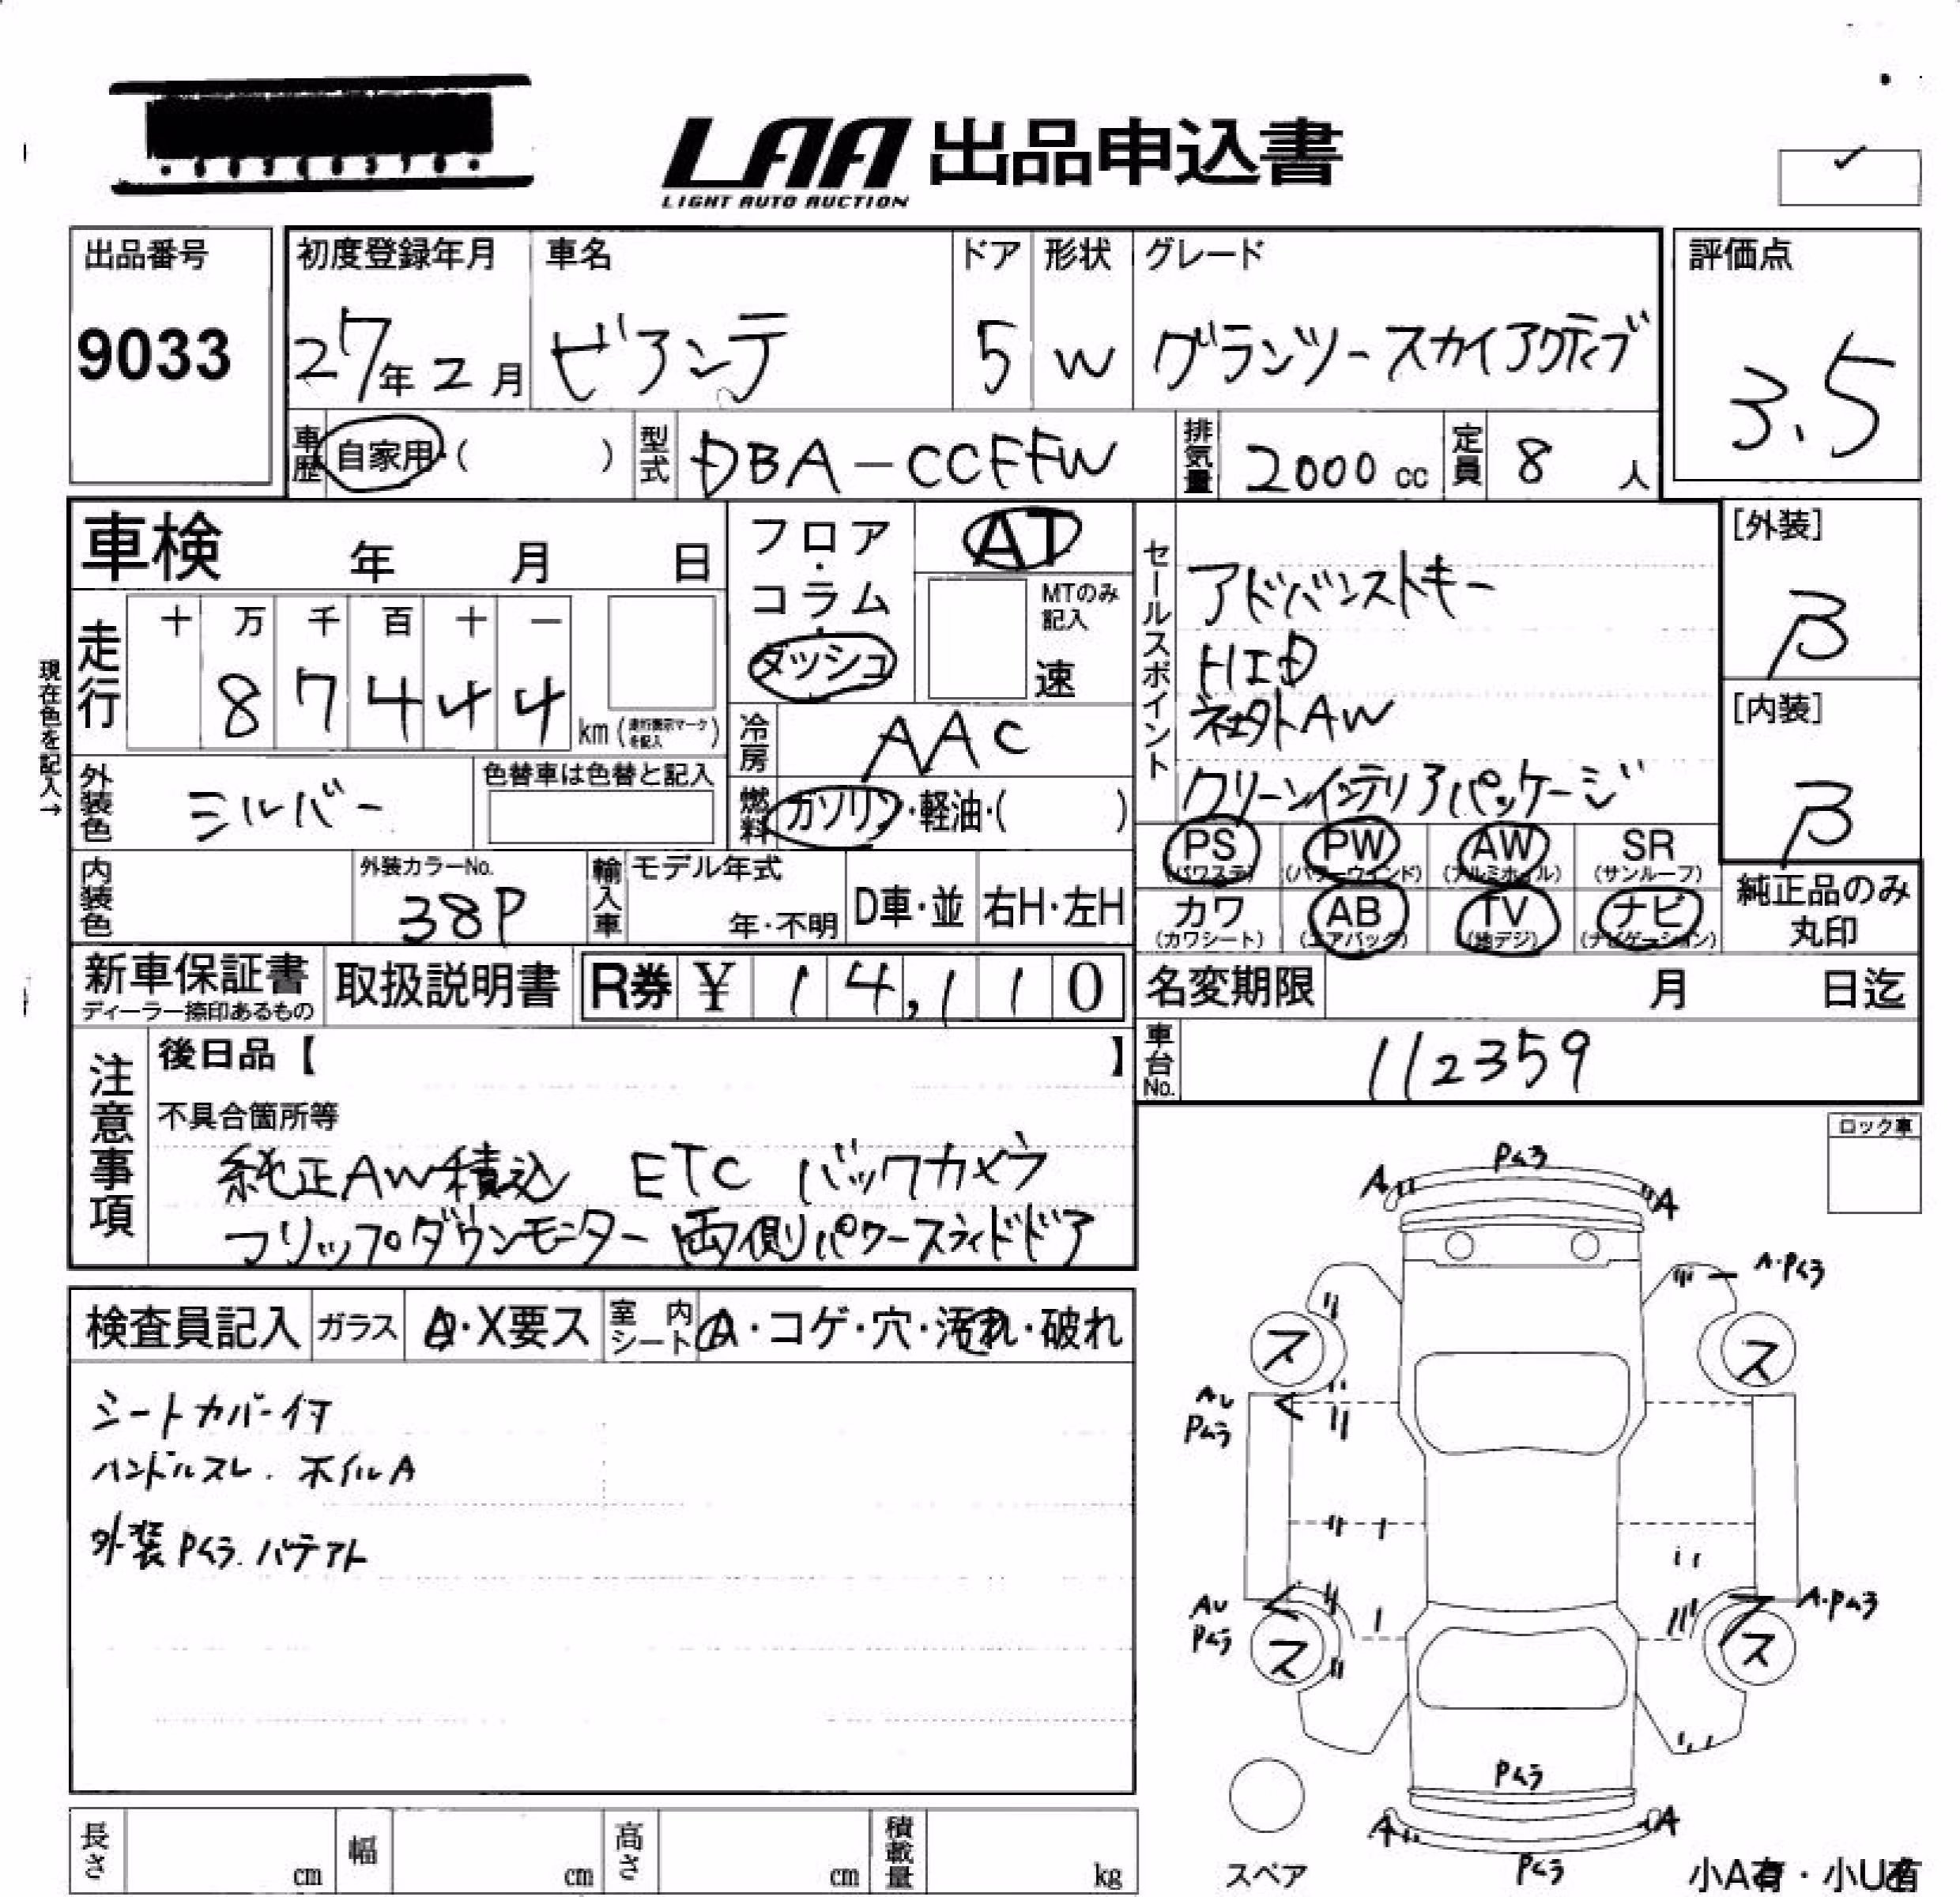 LAA 出品申込書
LIGHT AUTO AUCTION
出品番号
9033
初度登録年月
27年2月
車名
ビアンテ
ドア
5
形状
W
グレード
グランツースカイアクティブ
評価点
3.5
車歴 自家用・( )
型式 DBA-CCEFW
排気量 2000cc
定員 8人
車検 年 月 日
フロア・コラム・ダッシュ
AT
MTのみ記入
速
セールスポイント
アドバンストキー
HID
社外AW
クリーンインテリアパッケージ
[外装]
B
[内装]
B
現在色を記入→
走行
十 万 千 百 十 一
8 7 4 4 4
km (走行表示マークを記入)
冷房 AAC
外装色 シルバー
色替車は色替と記入
燃料 ガソリン・軽油・( )
PS (パワステ)
PW (パワーウインド)
AW (アルミホイル)
SR (サンルーフ)
カワ (カワシート)
AB (エアバッグ)
TV (地デジ)
ナビ (ナビゲーション)
純正品のみ丸印
内装色
外装カラーNo.
38P
輸入車
モデル年式
年・不明
D車・並
右H・左H
新車保証書
ディーラー捺印あるもの
取扱説明書
R券 ¥ 14,110
名変期限 月 日迄
車台No. 112359
注意事項
後日品【 】
不具合箇所等
純正AW積込 ETC バックカメラ
フリップダウンモニター 両側パワースライドドア
ロック車
検査員記入
ガラス A・X要ス
室内シート A・コゲ・穴・汚れ・破れ
シートカバー付
ハンドルスレ. ホイルA
外装Pムラ. パテアト
Pムラ
A
A
A・Pムラ
ス
ス
AU
Pムラ
AU
Pムラ
A・Pムラ
ス
ス
Pムラ
A
A
Pムラ
スペア
小A有・小U有
長さ cm
幅 cm
高さ cm
積載量 kg